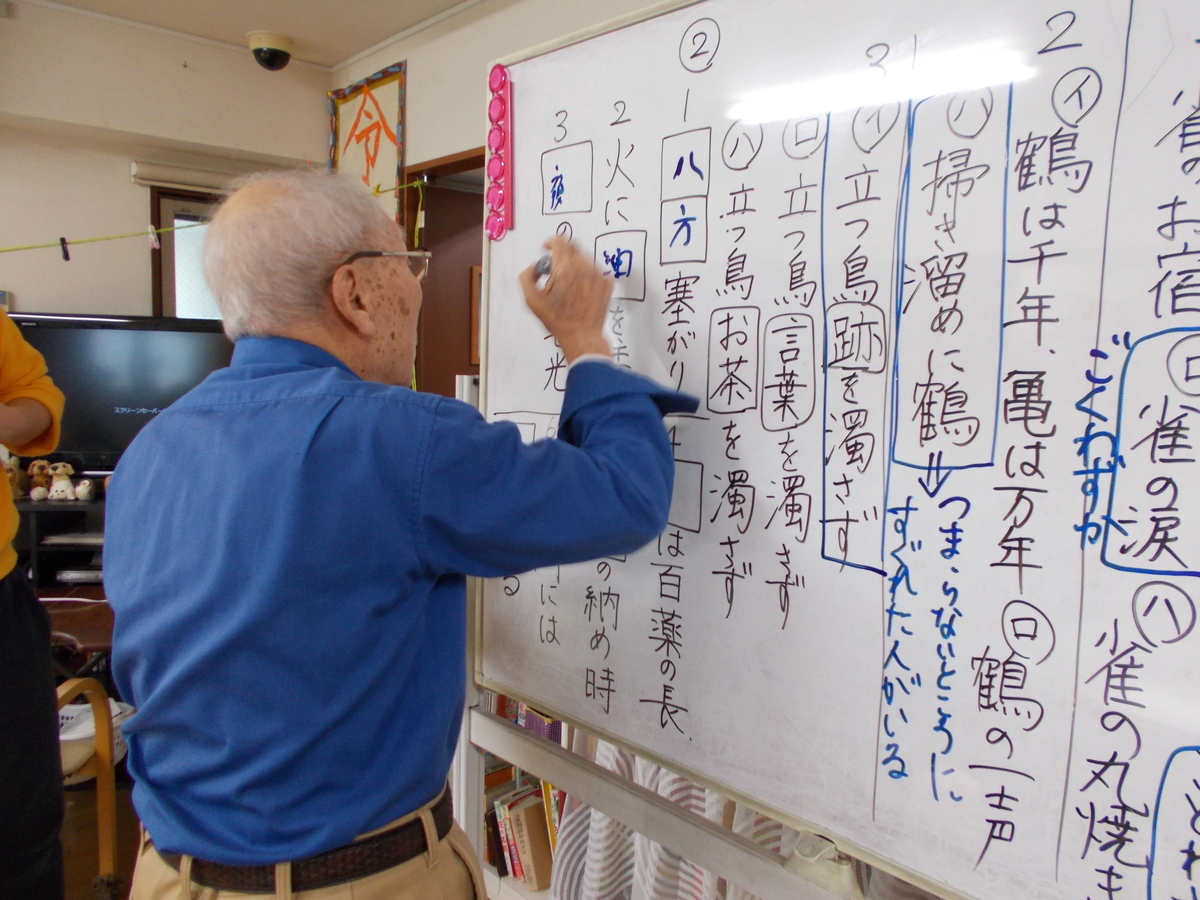 雀のお宿
ロ 雀の涙
ごくわずか
ハ 雀の丸焼き
2 イ 鶴は千年、亀は万年
ロ 鶴の一声
ハ 掃き溜めに鶴
⇓ つまらないところに
すぐれた人がいる
3 イ 立つ鳥跡を濁さず
ロ 立つ鳥言葉を濁さず
ハ 立つ鳥お茶を濁さず
②
1 八方塞がり
2 火に油を
3 の 光
は百薬の長
の納め時
には
る
令
スクリーンセーバー